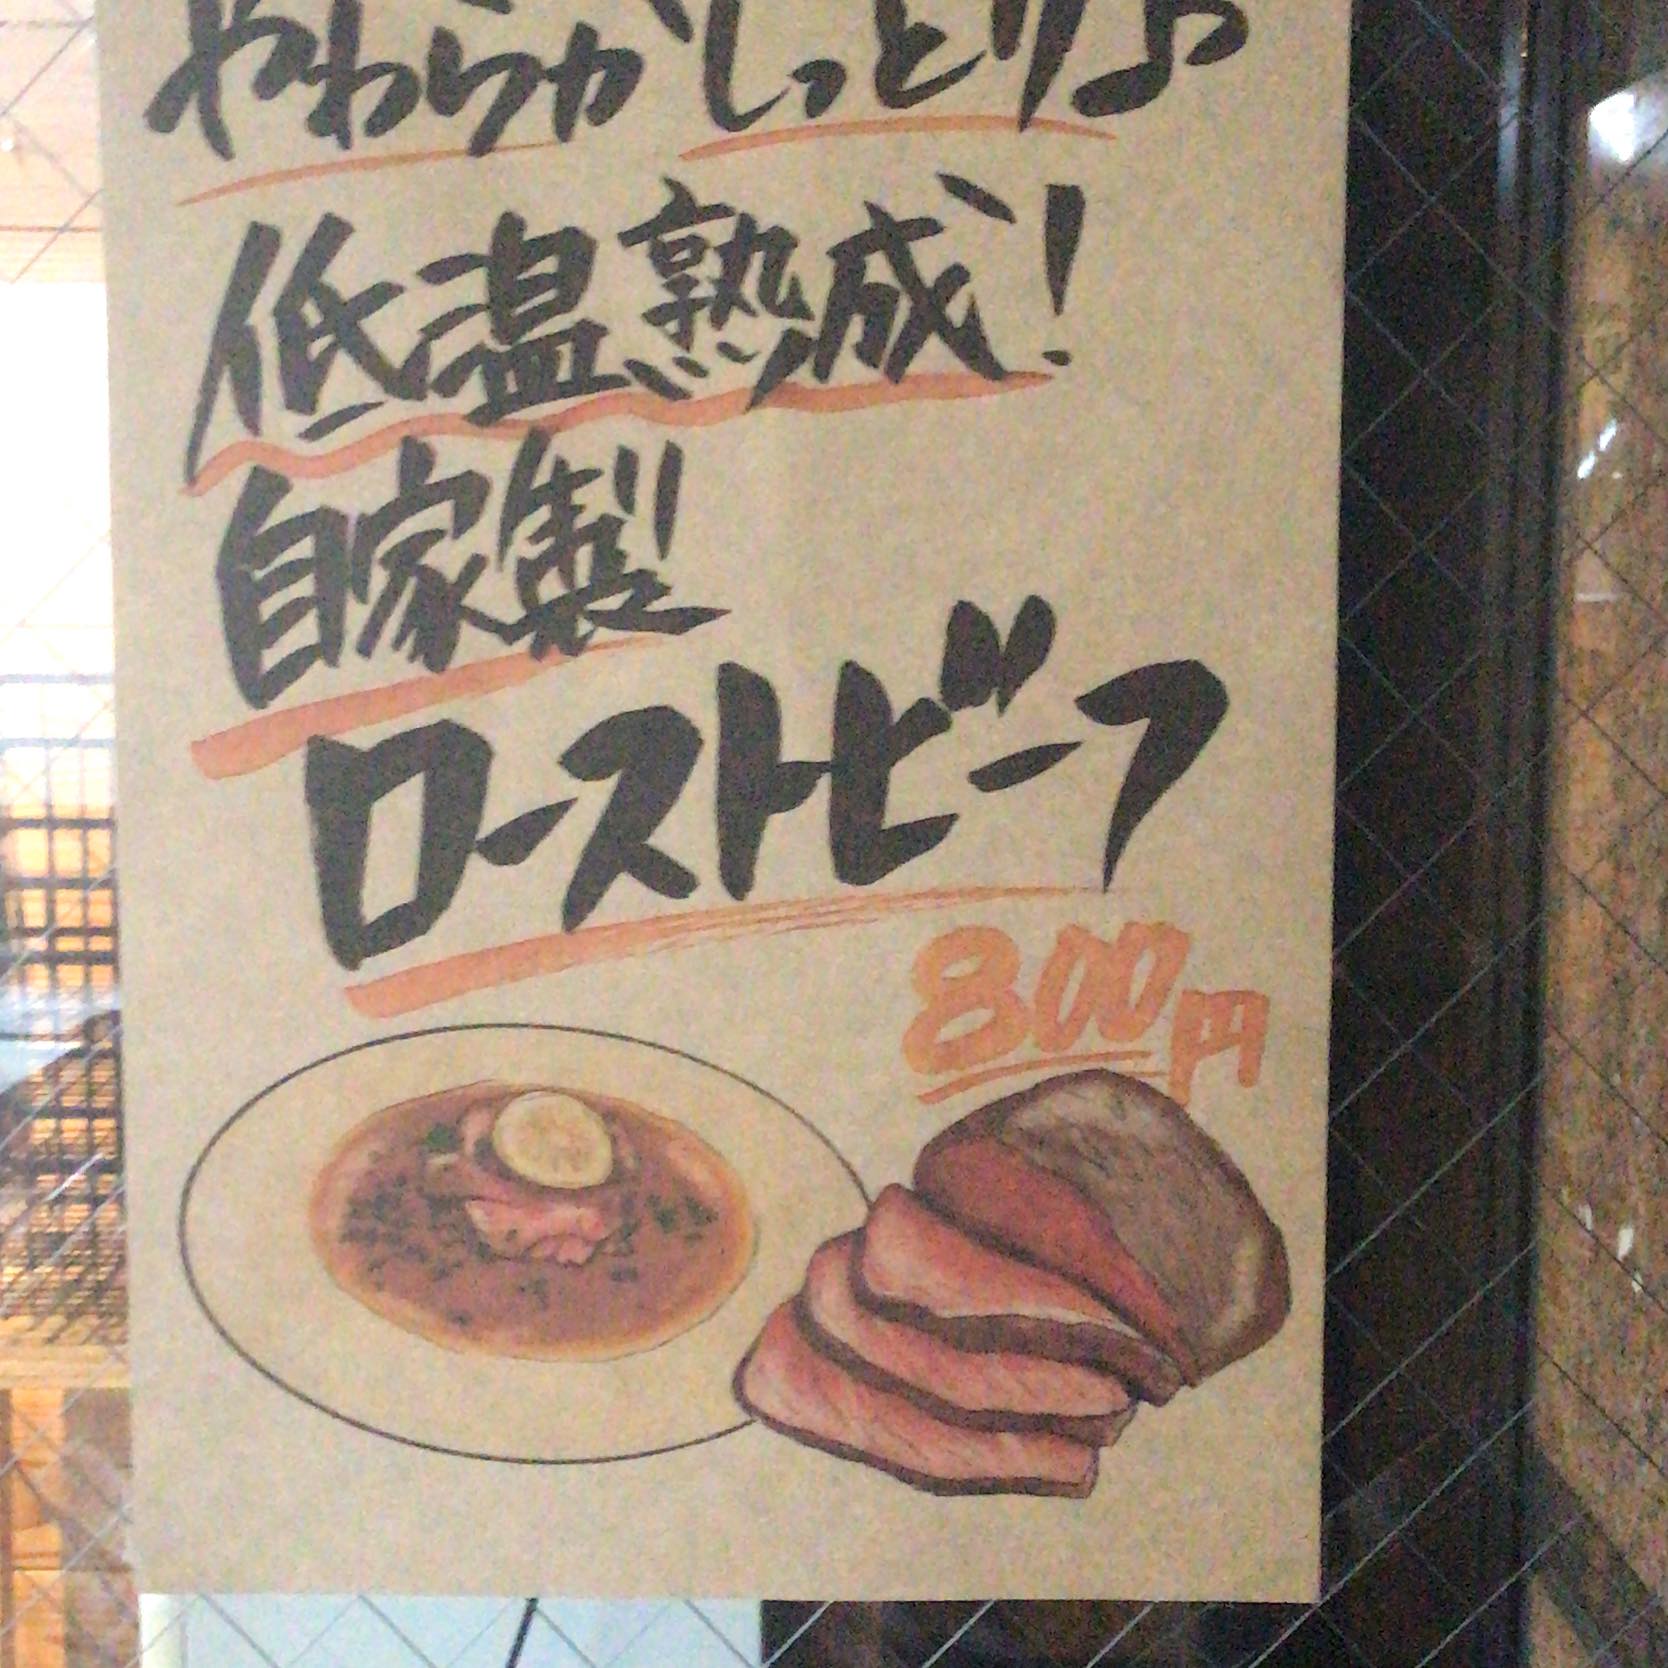 やわらかしっとり♪
低温熟成!
自家製
ローストビーフ
800円